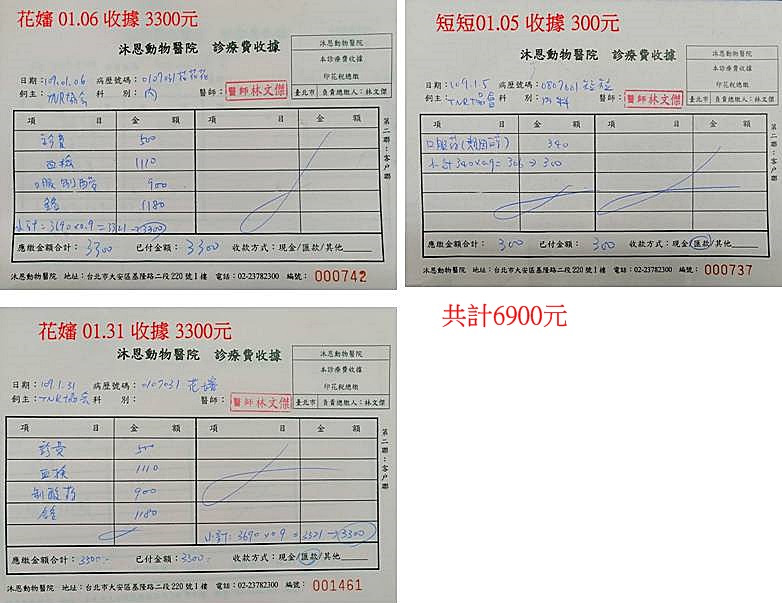 花嬸 01.06 收據 3300元
沐恩動物醫院 診療費收據
沐恩動物醫院
本診療費收據
印花稅總繳
臺北市 負責總繳人：林文傑
日期：109.01.06 病歷號碼：0107031
飼主：TNR協會 科 別：內 醫師：醫師林文傑
項 目 金 額 項 目 金 額
診費 500
血檢 1110
900
1180
小計：3690x0.9=3321→3300
第二聯：客戶聯
應繳金額合計：3300 已付金額：3300 收款方式：現金/匯款/其他
沐恩動物醫院 地址：台北市大安區基隆路二段220號1樓 電話：02-23782300 編號：000742
短短01.05 收據 300元
沐恩動物醫院 診療費收據
沐恩動物醫院
本診療費收據
印花稅總繳
臺北市 負責總繳人：林文傑
日期：109.1.5 病歷號碼：0807601 短短
飼主：TNR協會 科 別：內科 醫師：醫師林文傑
項 目 金 額 項 目 金 額
340
小計340x0.9=306→300
第二聯：客戶聯
應繳金額合計：300 已付金額：300 收款方式：現金/匯款/其他
沐恩動物醫院 地址：台北市大安區基隆路二段220號1樓 電話：02-23782300 編號：000737
花嬸 01.31 收據 3300元
沐恩動物醫院 診療費收據
沐恩動物醫院
本診療費收據
印花稅總繳
臺北市 負責總繳人：林文傑
日期：109.1.31 病歷號碼：0107031 花嬸
飼主：TNR協會 科 別： 醫師：醫師林文傑
項 目 金 額 項 目 金 額
診費 500
血檢 1110
制酸劑 900
1180
小計：3690x0.9=3321→3300
第二聯：客戶聯
應繳金額合計：3300- 已付金額：3300- 收款方式：現金/匯款/其他
沐恩動物醫院 地址：台北市大安區基隆路二段220號1樓 電話：02-23782300 編號：001461
共計6900元